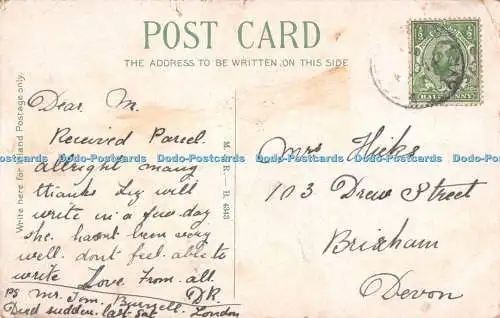 POST CARD
THE ADDRESS TO BE WRITTEN ON THIS SIDE
Write here for Inland Postage only.
HALFPENNY
Dear M.
Received Parcel.
allright many
thanks Liz will
write in a few day
she hasnt been very
well. dont feel able to
write Love From all.
PS Mr. Tom. Burrell.
Died sudden. last Sat London
Mrs Hicks
103 Drew Street
Brixham
Devon
Dodo-Postcards Dodo-Postcards Dodo-Postcards Dodo-Postcards Dodo-Postcards Dodo-Postcards